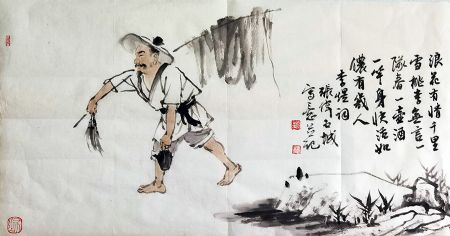 浪花有情千里
雪桃李無言一
隊春一壺酒
一竿身快活如
儂有幾人
李煜詞